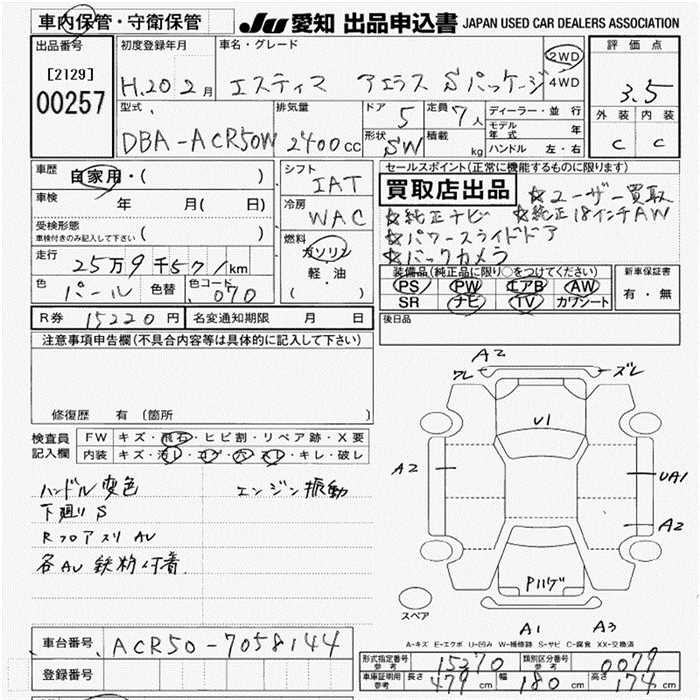 車内保管・守衛保管 JU 愛知 出品申込書 JAPAN USED CAR DEALERS ASSOCIATION
出品番号 初度登録年月 車名・グレード 評価点
[2129]
00257 H.20 2月 エスティマ アエラス Sパッケージ 2WD 4WD 3.5
型式 排気量 ドア 定員 ディーラー・並行 外装 内装
5 7人 モデル年式 年
DBA-ACR50W 2400cc 形状 SW 積載 kg ハンドル 左・右 C C
車歴 自家用・( ) シフト セールスポイント(正常に機能するものに限ります)
IAT 買取店出品 ☆ユーザー買取
車検 年 月( 日) 冷房 ☆純正ナビ ☆純正18インチAW
受検形態 WAC ☆パワースライドドア
車検付きのみ記入して下さい ( ) 燃料 ☆バックカメラ
走行 25万9千571km ガソリン 装備品(純正品に限り○をつけてください) 新車保証書
軽・油 PS PW エアB AW 有・無
色 パール 色替 色コード 070 ( ) SR ナビ TV カワシート
R券 15220円 名変通知期限 月 日 後日品
注意事項申告欄(不具合内容等は具体的に記入して下さい)
修復歴 有 (箇所 )
検査員 FW キズ・飛石・ヒビ割・リペア跡・X要
記入欄 内装 キズ・汚レ・コゲ・穴・スレ・キレ・破レ
ハンドル変色 エンジン振動
下廻りS
RフロアスリAU
各AU鉄粉付着
A2
ワレ ズレ
U1
A2 UA1
A2
Pハゲ
スペア
A1 A3
A-キズ E-エクボ U-凹み W-補修跡 S-サビ C-腐食 XX-交換済
車台番号 ACR50-7058144
登録番号
形式指定番号 参考 15270 類別区分番号 参考 0079
車庫証明用 参考 長さ 479cm 幅 180cm 高さ 174cm